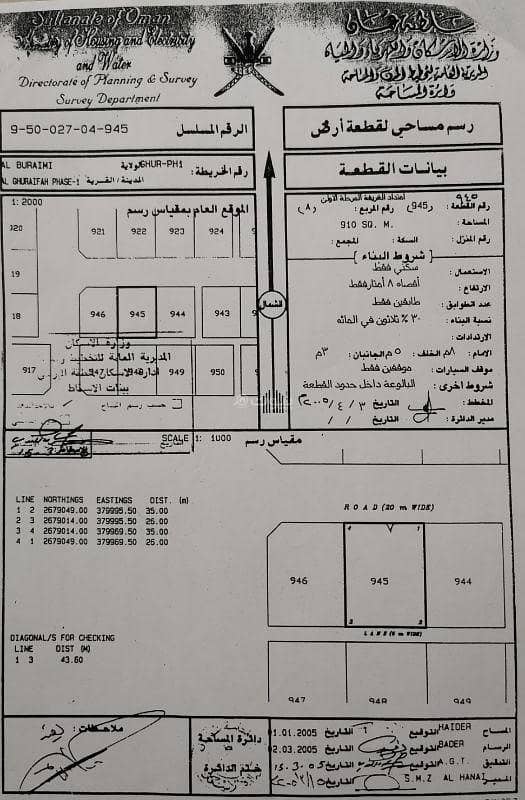 Sultanate of Oman
Ministry of Housing and Electricity
and Water
Directorate of Planning & Survey
Survey Department
سلطنة عمان
وزارة الإسكان والكهرباء والمياه
المديرية العامة للتخطيط والمساحة
دائرة المساحة
9-50-027-04-945
الرقم المسلسل
رسم مساحي لقطعة أرض
AL BURAIMI
ولاية
GHUR-PH1
رقم الخريطة:
AL GHURAIFAH PHASE-1
المدينة / القرية:
بيانات القطعة
1: 2000
الموقع العام بمقياس رسم
920
921
922
923
924
19
18
946
945
944
943
917
949
950
الشمال
امتداد الغريفة المرحلة الأولى
٩٤٥
رقم القطعة: (945) رقم المربع: (٨)
المساحة: 910 SQ. M.
رقم المنزل: السكة: المجمع:
شروط البناء
الاستعمال: سكني فقط
الارتفاع: أقصاه ٨ أمتار فقط
عدد الطوابق: طابقين فقط
نسبة البناء: ٣٠٪ ثلاثون في المائه
الارتدادات:
الأمام: ٨م الخلف: ٥م الجانبان: ٣م
موقف السيارات: موقفين فقط
شروط أخرى: البالوعة داخل حدود القطعة
المخطط: التاريخ ٣ / ٤ / ٢٠٠٥م
مدير الدائرة: التاريخ / /
وزارة الاسكان
SCALE 1: 1000
مقياس رسم
LINE NORTHINGS EASTINGS DIST. (m)
1 2 2679049.00 379995.50 35.00
2 3 2679014.00 379995.50 26.00
3 4 2679014.00 379969.50 35.00
4 1 2679049.00 379969.50 26.00
ROAD (20 m WIDE)
4
1
946
945
944
3
2
LANE (6 m WIDE)
947
948
949
DIAGONAL/S FOR CHECKING
LINE DIST (M)
1 3 43.60
ملاحظات:
دائرة المساحة
ختم الدائرة
المساح HAIDER التوقيع التاريخ 01.01.2005
الرسام BADER التوقيع التاريخ 02.03.2005
التدقيق A.G.T. التوقيع التاريخ
المدير S.M.Z AL HANAI التوقيع التاريخ